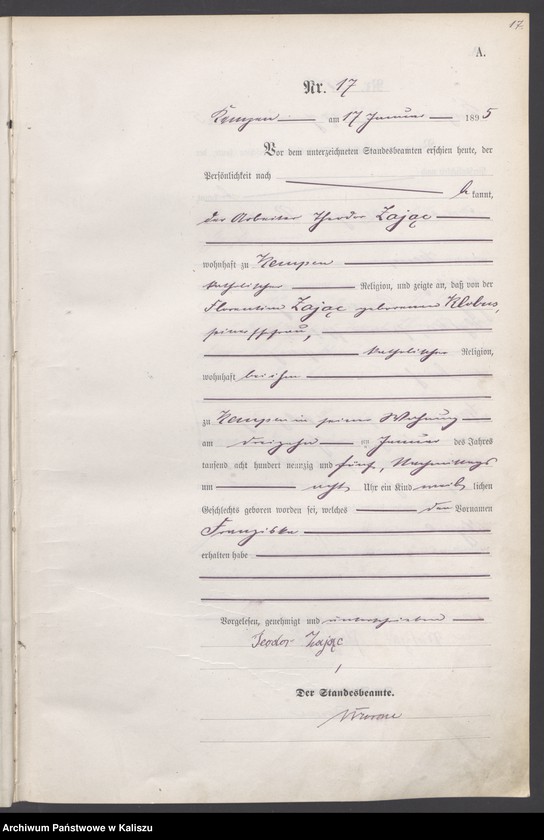 17.
A.
Nr. 17
Kempen am 17 Januar 1895
Vor dem unterzeichneten Standesbeamten erschien heute, der
Persönlichkeit nach
be kannt,
der Arbeiter Theodor Zając
wohnhaft zu Kempen
katholischer Religion, und zeigte an, daß von der
Florentina Zając geborenen Klobus,
seiner Ehefrau,
katholischer Religion,
wohnhaft bei ihm
zu Kempen in seiner Wohnung
am dreizehn ten Januar des Jahres
tausend acht hundert neunzig und fünf, Nachmittags
um acht Uhr ein Kind weib lichen
Geschlechts geboren worden sei, welches den Vornamen
Franziska
erhalten habe
Vorgelesen, genehmigt und unterschrieben
Teodor Zając
Der Standesbeamte.
Archiwum Państwowe w Kaliszu